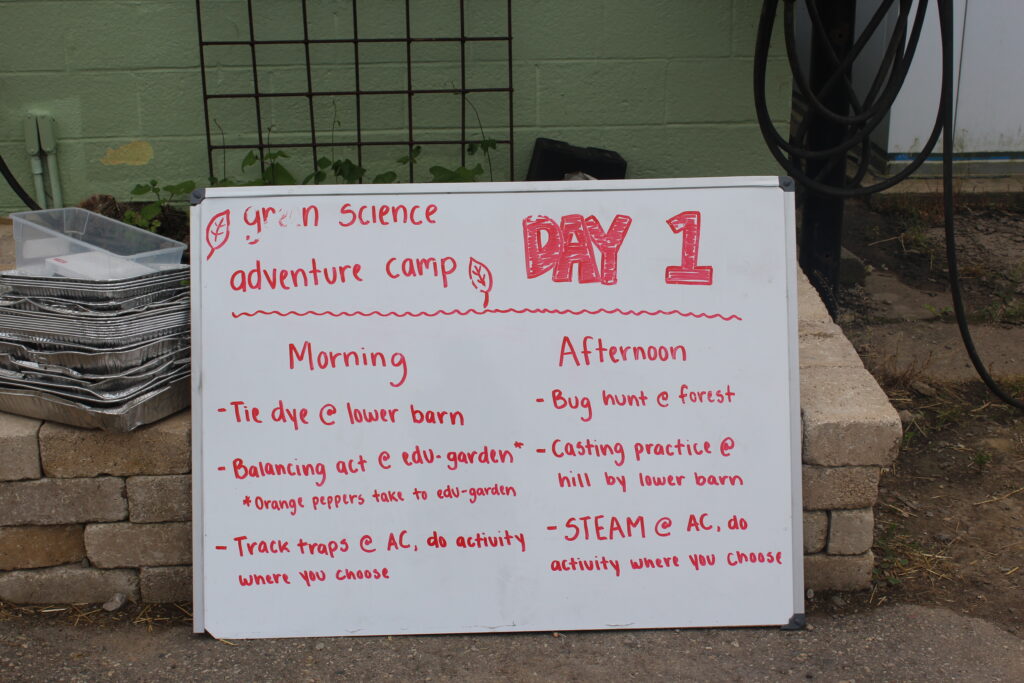 green science
adventure camp
DAY 1
Morning
- Tie dye @ lower barn
- Balancing act @ edu-garden*
*Orange peppers take to edu-garden
- Track traps @ AC, do activity
where you choose
Afternoon
- Bug hunt @ forest
- Casting practice @
hill by lower barn
- STEAM @ AC, do
activity where you choose